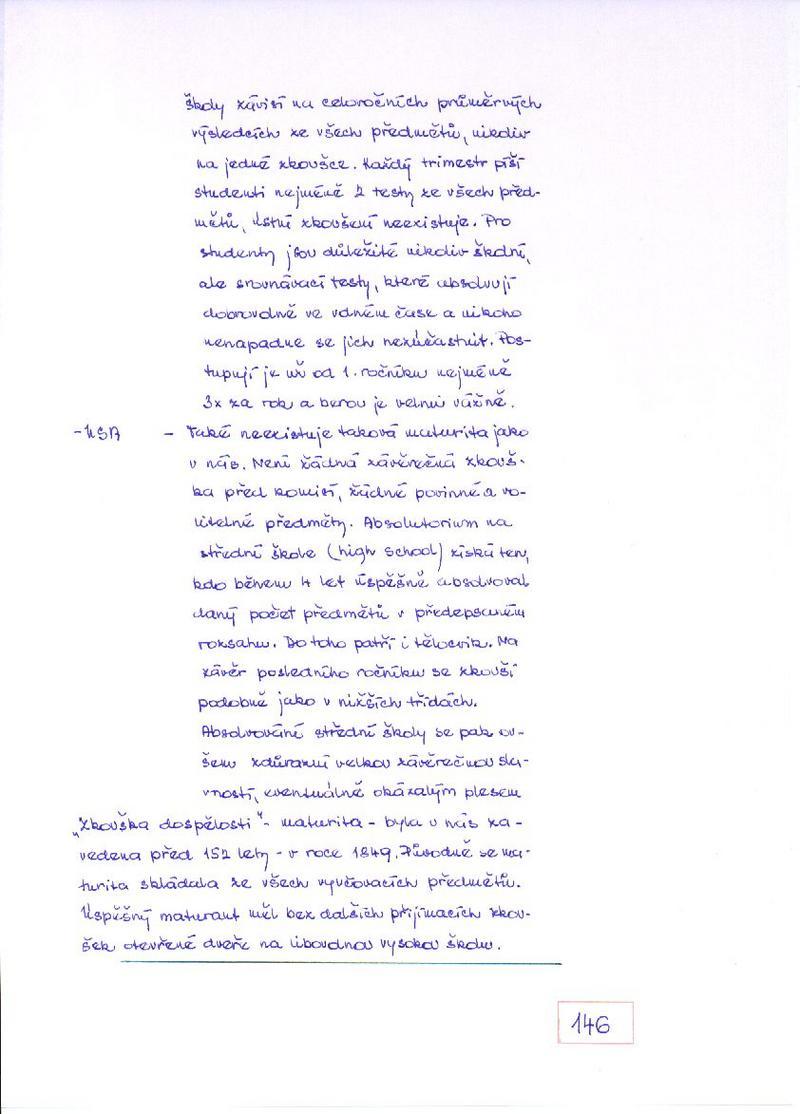 školy závisí na celoročních průměrných
výsledcích ze všech předmětů, nikoliv
na jedné zkoušce. Každý trimestr píší
studenti nejméně 2 testy ze všech před-
mětů, ústní zkoušení neexistuje. Pro
studenty jsou důležité nikoliv školní,
ale srovnávací testy, které absolvují
dobrovolně ve volném čase a nikoho
nenapadne se jich nezúčastnit. Pos-
tupují je už od 1. ročníku nejméně
3x za rok a berou je velmi vážně.
-USA - Také neexistuje taková maturita jako
u nás. Není žádná závěrečná zkouš-
ka před komisí, žádné povinné a vo-
litelné předměty. Absolutorium na
střední škole (high school) získá ten,
kdo během 4 let úspěšně absolvoval
daný počet předmětů v předepsaném
rozsahu. Do toho patří i tělocvik. Na
závěr posledního ročníku se zkouší
podobně jako v nižších třídách.
Absolvování střední školy se pak ov-
šem zdůrazní velkou závěrečnou sla-
vností, eventuálně okázalým plesem
„Zkouška dospělosti" - maturita - byla u nás za-
vedena před 152 lety - v roce 1849. Původně se ma-
turita skládala ze všech vyučovacích předmětů.
Úspěšný maturant měl bez dalších přijímacích zkou-
šek otevřené dveře na libovolnou vysokou školu.
146